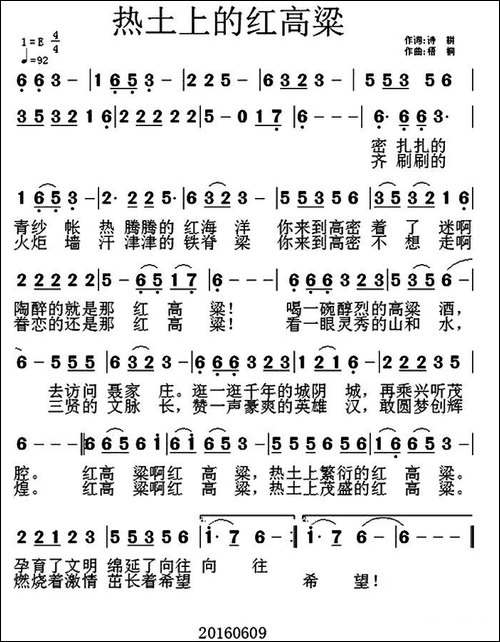 热土上的红高粱
1=E 4/4
♩=92
作词:诗 耕
作曲:梧 桐
6 6 3 - | 1 6 5 3 - | 2 2 2 · 2 | 3 2 1 6 - | 5 5 3 5 6 |
3 5 3 2 1 6 | 2 2 2 2 2 | 5 - 0 1 7 | 6 - - - | 6 · 6 6 3 · |
密 扎扎的
齐 刷刷的
1 6 5 3 - | 2 · 2 2 5 · | 6 3 2 3 - | 5 5 3 5 6 | 3 5 3 2 1 6 |
青纱 帐 热 腾腾的 红海 洋 你来到高密 着 了 迷啊
火炬 墙 汗 津津的 铁脊 梁 你来到高密 不 想 走啊
2 2 2 2 2 | 5 - 6 5 1 7 | 6 - - - | 6 6 6 3 2 3 | 5 · 3 5 6 - |
陶醉的就是那 红 高 粱! 喝一碗醇烈的高粱 酒,
眷恋的还是那 红 高 粱! 看一眼灵秀的山和 水,
6 - 5 5 5 | 1 2 · 3 - | 6 6 6 1 6 5 6 | 3 · 2 3 - | 1 2 1 6 - | 2 2 · 5 3 5 |
去访问 聂家 庄。逛一逛千年的城阴 城,再乘兴听茂
三贤的 文脉 长,赞一声豪爽的英雄 汉,敢圆梦创辉
6 - - - | 6 6 5 6 i | 6 i 6 5 3 - | 5 5 3 5 6 5 6 | 1 6 6 5 3 - |
腔。 红高 粱啊红 高 粱,热土上繁衍的 红 高 粱。
煌。 红高 粱啊红 高 粱,热土上茂盛的 红 高 粱。
2 2 1 2 3 | 5 5 3 5 6 | i · 7 6 - | 6 - - :| i · 7 6 - | 6 - - - |
孕育了文明 绵延了向往 向 往
燃烧着激情 茁长着希望 希 望!
20160609